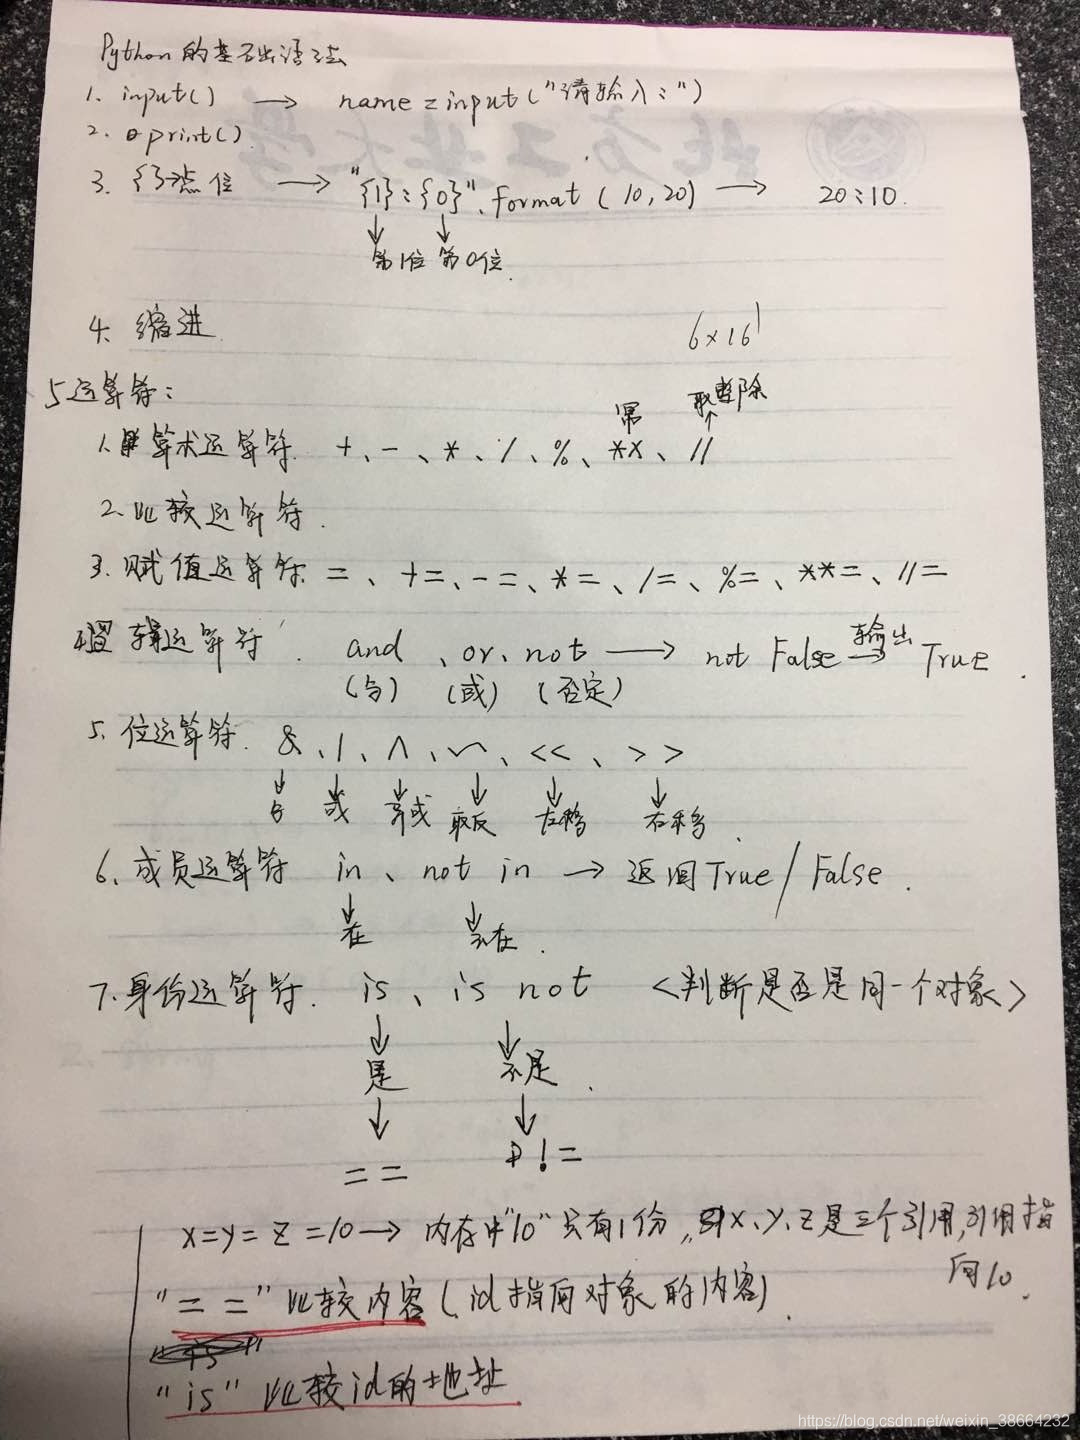 Python的基础语法
1. input() → name = input("请输入:")
2. print()
3. {}占位 → "{1}:{0}".format(10,20) → 20:10.
↓ ↓
第1位 第0位.
4. 缩进
6×16
5运算符:
幂 取整除
1. 算术运算符. +、-、*、/、%、**、//
2. 比较运算符.
3. 赋值运算符. =、+=、-=、*=、/=、%=、**=、//=
4逻辑运算符. and、or、not → not False 输出→ True.
(与) (或) (否定)
5. 位运算符. &、|、^、~、<<、>>
↓ ↓ ↓ ↓ ↓ ↓
与 或 异或 取反 左移 右移.
6. 成员运算符 in、not in → 返回True/False.
↓ ↓
在 不在.
7. 身份运算符. is、is not <判断是否是同一个对象>
↓ ↓
是 不是.
↓ ↓
== !=
x=y=z=10 → 内存中"10"只有1份, x、y、z是三个引用,引用指
向10.
"=="比较内容(id指向对象的内容).
"is"
"is"比较id的地址
https://blog.csdn.net/weixin_38664232